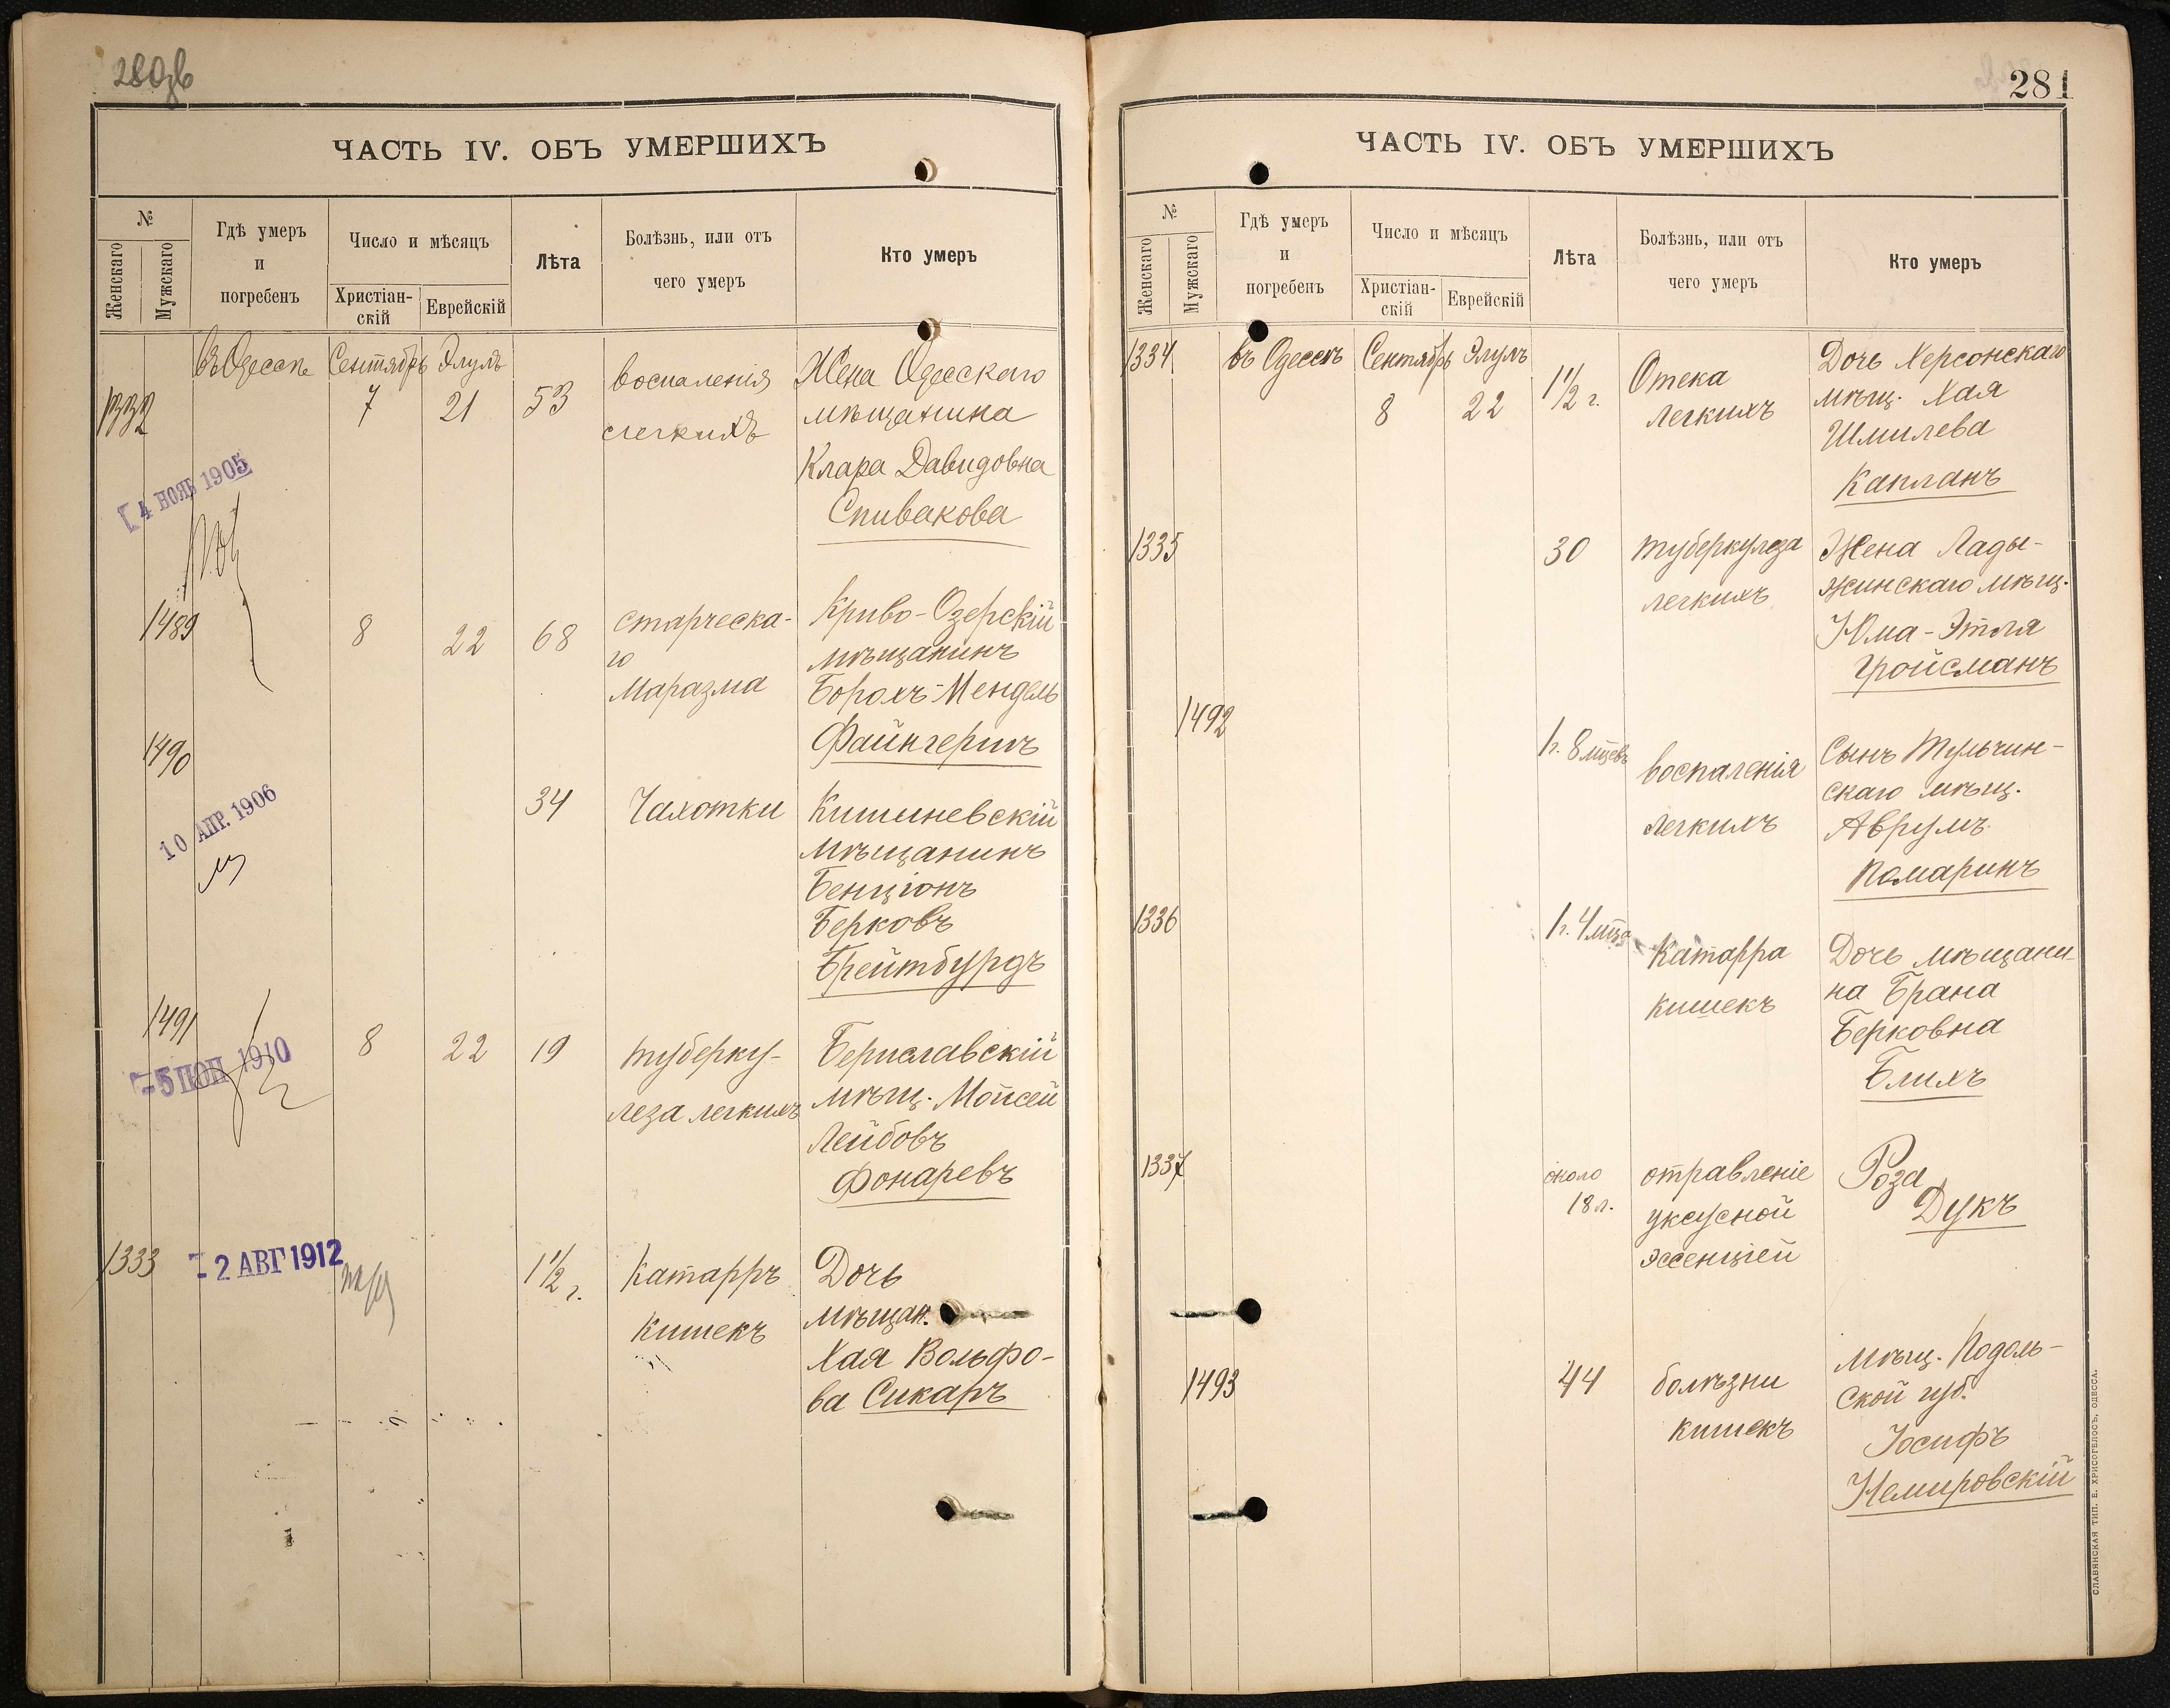 280об
ЧАСТЬ IV. ОБЪ УМЕРШИХЪ
№
Женскаго
Мужскаго
Гдѣ умеръ
и
погребенъ
Число и мѣсяцъ
Христіан-
скій
Еврейскій
Лѣта
Болѣзнь, или отъ
чего умеръ
Кто умеръ
въ Одессѣ Сентябрь Элулъ
1332
7
21
53
воспаленія
легкихъ
Жена Одесскаго
мѣщанина
Клара Давидовна
Спивакова
4 НОЯБ 1905
1489
8
22
68
старческа-
го
маразма
Криво-Озерскій
мѣщанинъ
Борохъ-Мендель
Файнгершъ
1490
34
Чахотки
Кишиневскій
мѣщанинъ
Бенціонъ
Берковъ
Брейтбурдъ
10 АПР. 1906
1491
8
22
19
туберку-
леза легкихъ
Бериславскій
мѣщ. Мойсей
Лейбовъ
Фонаревъ
-5 1910
1333
-2 АВГ 1912
1 1/2 г.
Катарръ
кишекъ
Дочь
мѣщан.
Хая Вольфо-
ва Сикаръ
281
ЧАСТЬ IV. ОБЪ УМЕРШИХЪ
№
Женскаго
Мужскаго
Гдѣ умеръ
и
погребенъ
Число и мѣсяцъ
Христіан-
скій
Еврейскій
Лѣта
Болѣзнь, или отъ
чего умеръ
Кто умеръ
1334
въ Одессѣ Сентябрь Элулъ
8
22
1 1/2 г.
Отека
легкихъ
Дочь Херсонскаго
мѣщ. Хая
Шмилева
Капланъ
1335
30
туберкулеза
легкихъ
Жена Лады-
жинскаго мѣщ.
Юма-Этля
Гройсманъ
1492
1 г. 8 мцевъ
воспаленія
легкихъ
Сынъ Тульчин-
скаго мѣщ.
Аврумъ
Помаринъ
1336
1 г. 4 мца
Катарра
кишекъ
Дочь мѣщани-
на Брана
Берковна
Блихъ
1337
около
18 л.
отравленіе
уксусной
эссенціей
Роза
Дукъ
1493
44
болѣзни
кишекъ
Мѣщ. Подоль-
ской губ.
Іосифъ
Немировскій
СЛАВЯНСКАЯ ТИП. Е. ХРИСОГЕЛОСЪ, ОДЕССА.